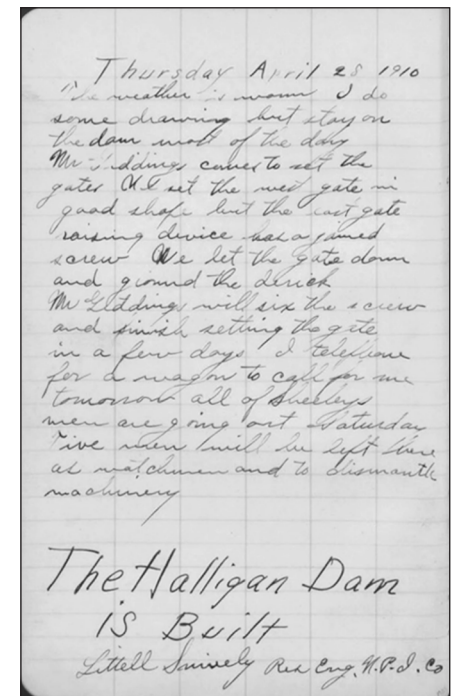 Thursday April 28 1910
The weather is warm I do
some drawing but stay on
the dam most of the day
Mr Giddings comes to set the
gates We set the west gate in
good shape but the east gate
raising divice has a jamed
screw We let the gate down
and ground the derick
Mr Giddings will fix the screw
and finish setting the gate
in a few days I telephone
for a wagon to call for me
tomorrow all of Sheeleys
men are going out Saturday
Five men will be left here
as watchmen and to dismantle
machinery
The Halligan Dam
is Built
Littell Snively Res Eng. N.P.I. Co